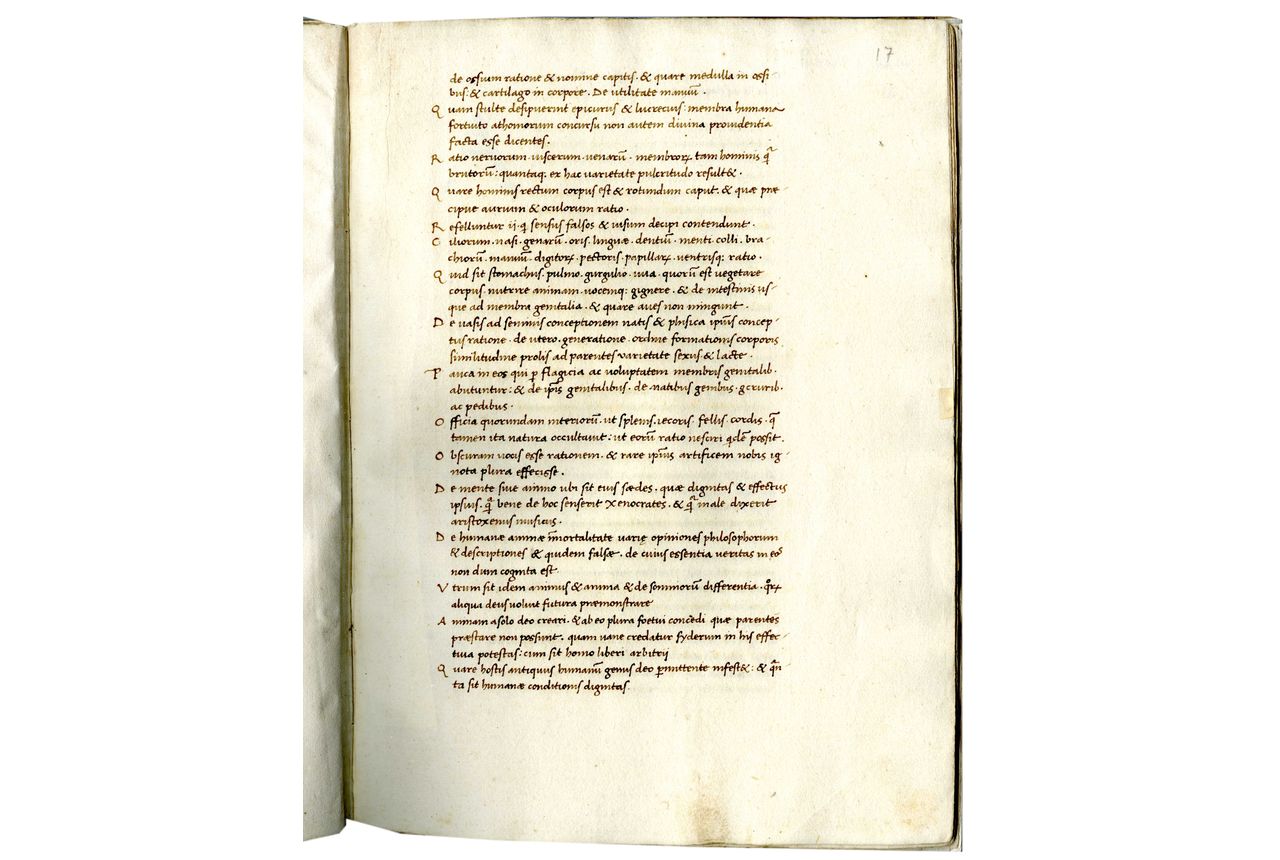 17
de ossium ratione & nomine capitis. & quare medulla in ossi-
bus: & cartilago in corpore. De utilitate manuū.
Quam stulte desipuerint epicurus & lucrecius: membra humana
fortuito athomorum concursu non autem diuina prouidentia
facta esse dicentes.
Ratio neruorum. uiscerum. uenarū. membroꝝ tam hominis qͣ
brutorū: quantaq; ex hac varietate pulcritudo result&.
Quare hominis rectum corpus est & rotundum caput. & quæ præ-
cipue aurium & oculorum ratio.
Refelluntur ii. qͥ sensus falsos & uisum decipi contendunt.
Ciliorum. nasi. genarū. oris. linguæ. dentiū. menti. colli. bra-
chiorū. manuū. digitoꝝ. pectoris. papillaꝝ. ventrisq; ratio.
Quid sit stomachus. pulmo. gurgulio. uua. quorū est vegetare
corpus. nutrire animam. uocemq; gignere. & de intestinis us-
que ad membra genitalia. & quare aues non mingunt.
De uasis ad seminis conceptionem natis & phisica ipīus concep-
tus ratione. de utero. generatione. ordine formationis corporis
similitudine prolis ad parentes varietate sexus. & lacte.
Pauca in eos qui ꝑ flagicia ac voluptatem membris genitalib.
abutuntur: & de ipīs genitalibus. de natibus genibus. & crurib.
ac pedibus.
Officia quorundam interiorū. ut splenis. iecoris. fellis. cordis. q̄
tamen ita natura occultauit: ut eorū ratio nesciri qͥdē possit.
Obscuram uocis esse rationem. & rare ipīus artificem nobis ig-
nota plura effecisse.
De mente siue animo ubi sit eius sædes. quæ dignitas & effectus
ipsius. qͣ bene de hoc senserit Xenocrates. & qͣ male dixerit
aristoxenus musicus.
De humanæ animæ īmortalitate varię opiniones philosophorum
& descriptiones & quidem falsæ. de cuius essentia veritas in eoˢ
non dum cognita est
Vtrum sit idem animus & anima & de somniorū differentia. qͦꝝ
aliqua deus voluit futura præmonstrare
Animam a solo deo creari. & ab eo plura foetui concedi quæ parentes
præstare non possunt. quam uane credatur syderum in his effec-
tiua potestas: cum sit homo liberi arbitrij
Quare hostis antiquus humanū genus deo ꝑmittente infest&: & qͣn
ta sit humanæ conditionis dignitas.